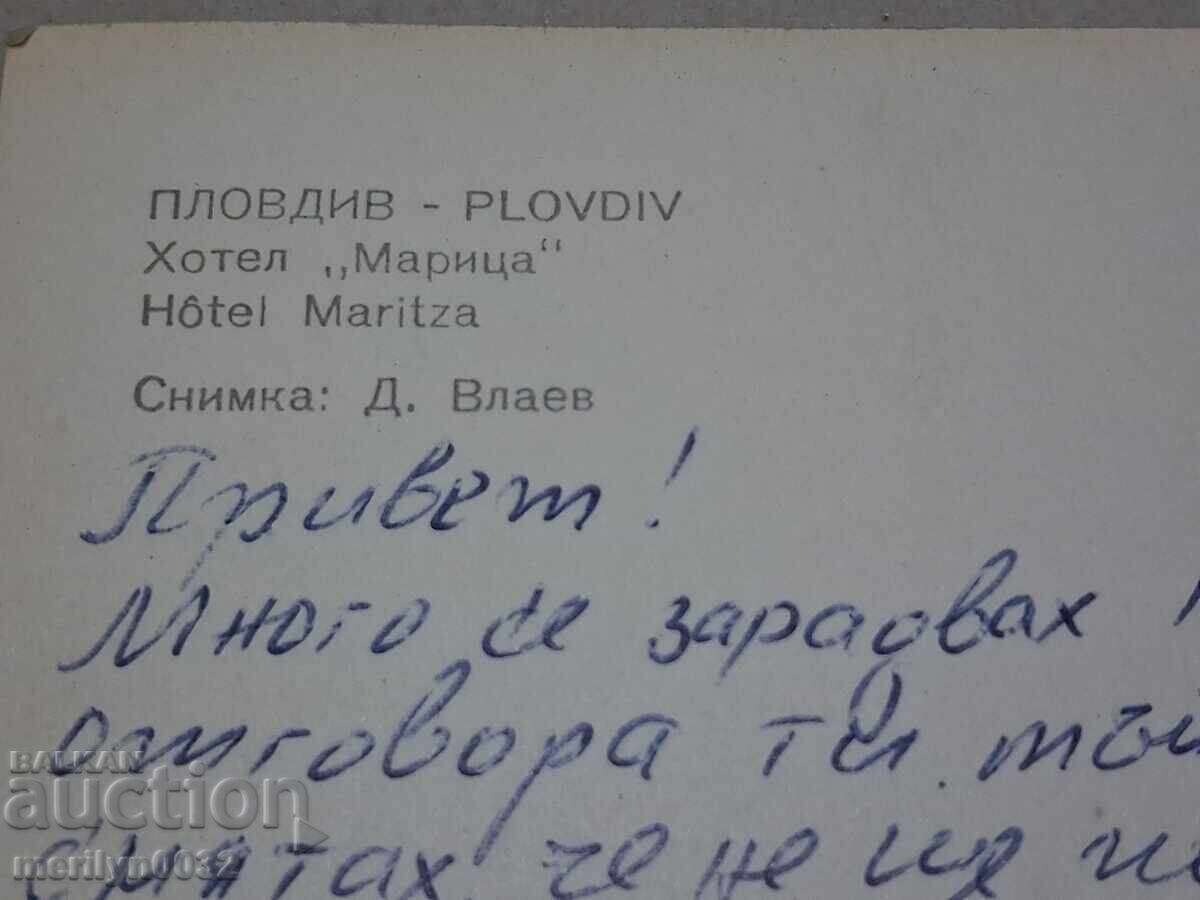 ПЛОВДИВ - PLOVDIV
Хотел „Марица“
Hôtel Maritza
Снимка: Д. Влаев
Привет!
Много се зарадвах
отговора ти
смятах, че не ще
BALKAN
auction
merilyn0032